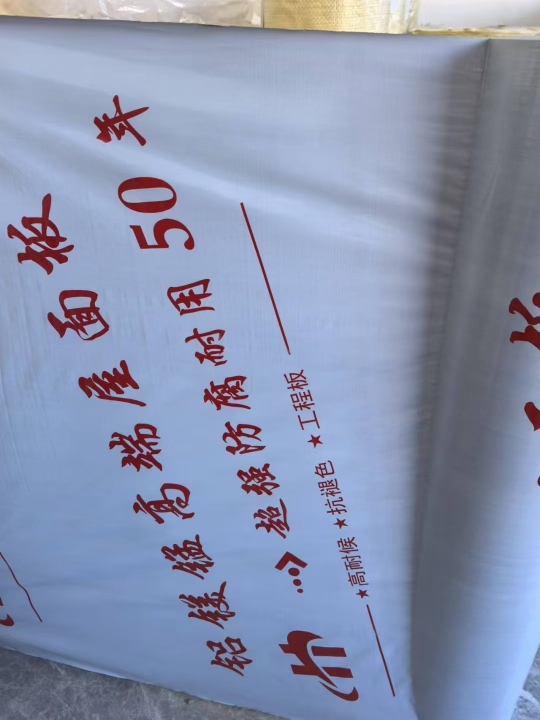 铝镁锰高端屋面板
超强防腐耐用50年
★高耐候 ★抗褪色 ★工程板